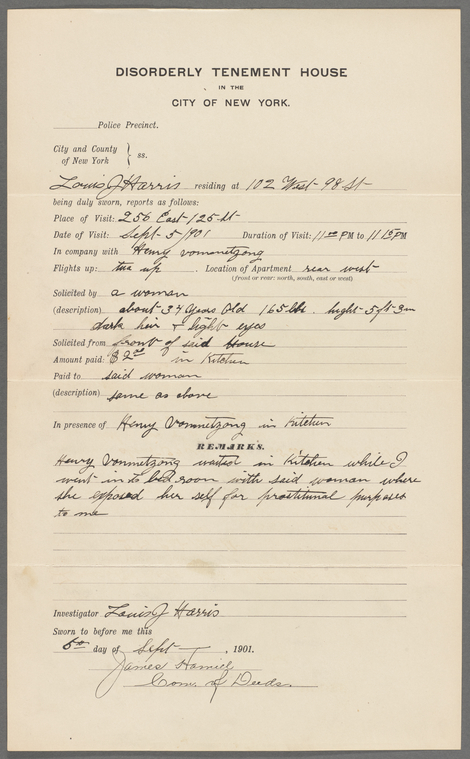 DISORDERLY TENEMENT HOUSE
IN THE
CITY OF NEW YORK.
Police Precinct.
City and County
of New York } ss.
Louis J Harris residing at 102 West 98 St
being duly sworn, reports as follows:
Place of Visit: 256 East 125 St
Date of Visit: Sept 5/1901 Duration of Visit: 11 00 PM to 11 15 PM
In company with Henry vonmetzong
Flights up: two up Location of Apartment rear west
(front or rear: north, south, east or west)
Solicited by a woman
(description) about 34 years Old 165 lbs. hight 5 ft 3 in
dark hair + light eyes
Solicited from front of said House
Amount paid: $2.00 in Kitchen
Paid to said woman
(description) same as above
In presence of Henry Vonmetzong in Kitchen
REMARKS.
Henry Vonmetzong waited in Kitchen while I
went in to bed room with said woman where
she exposed her self for prostitunal purposes
to me
Investigator Louis J Harris
Sworn to before me this
day of Sept , 1901.
James Hamill
Com. of Deeds.